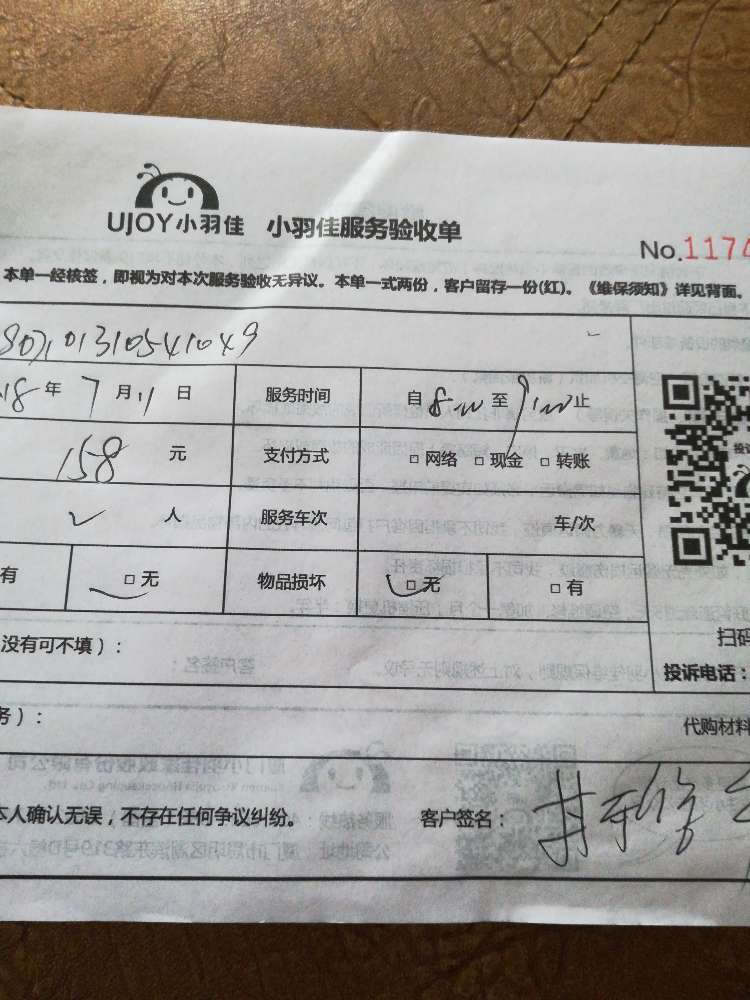 UJOY小羽佳 小羽佳服务验收单
No.1174
本单一经核签，即视为对本次服务验收无异议。本单一式两份，客户留存一份(红)。《维保须知》详见背面。
807101310541049
18年 7月11日 服务时间 自8:00至9:00止
158 元 支付方式 □ 网络 □ 现金 □ 转账
2 人 服务车次 车/次
有 □ 无 物品损坏 □ 无 □ 有
扫码
没有可不填）：
投诉电话：
务）：
代购材料
本人确认无误，不存在任何争议纠纷。 客户签名：